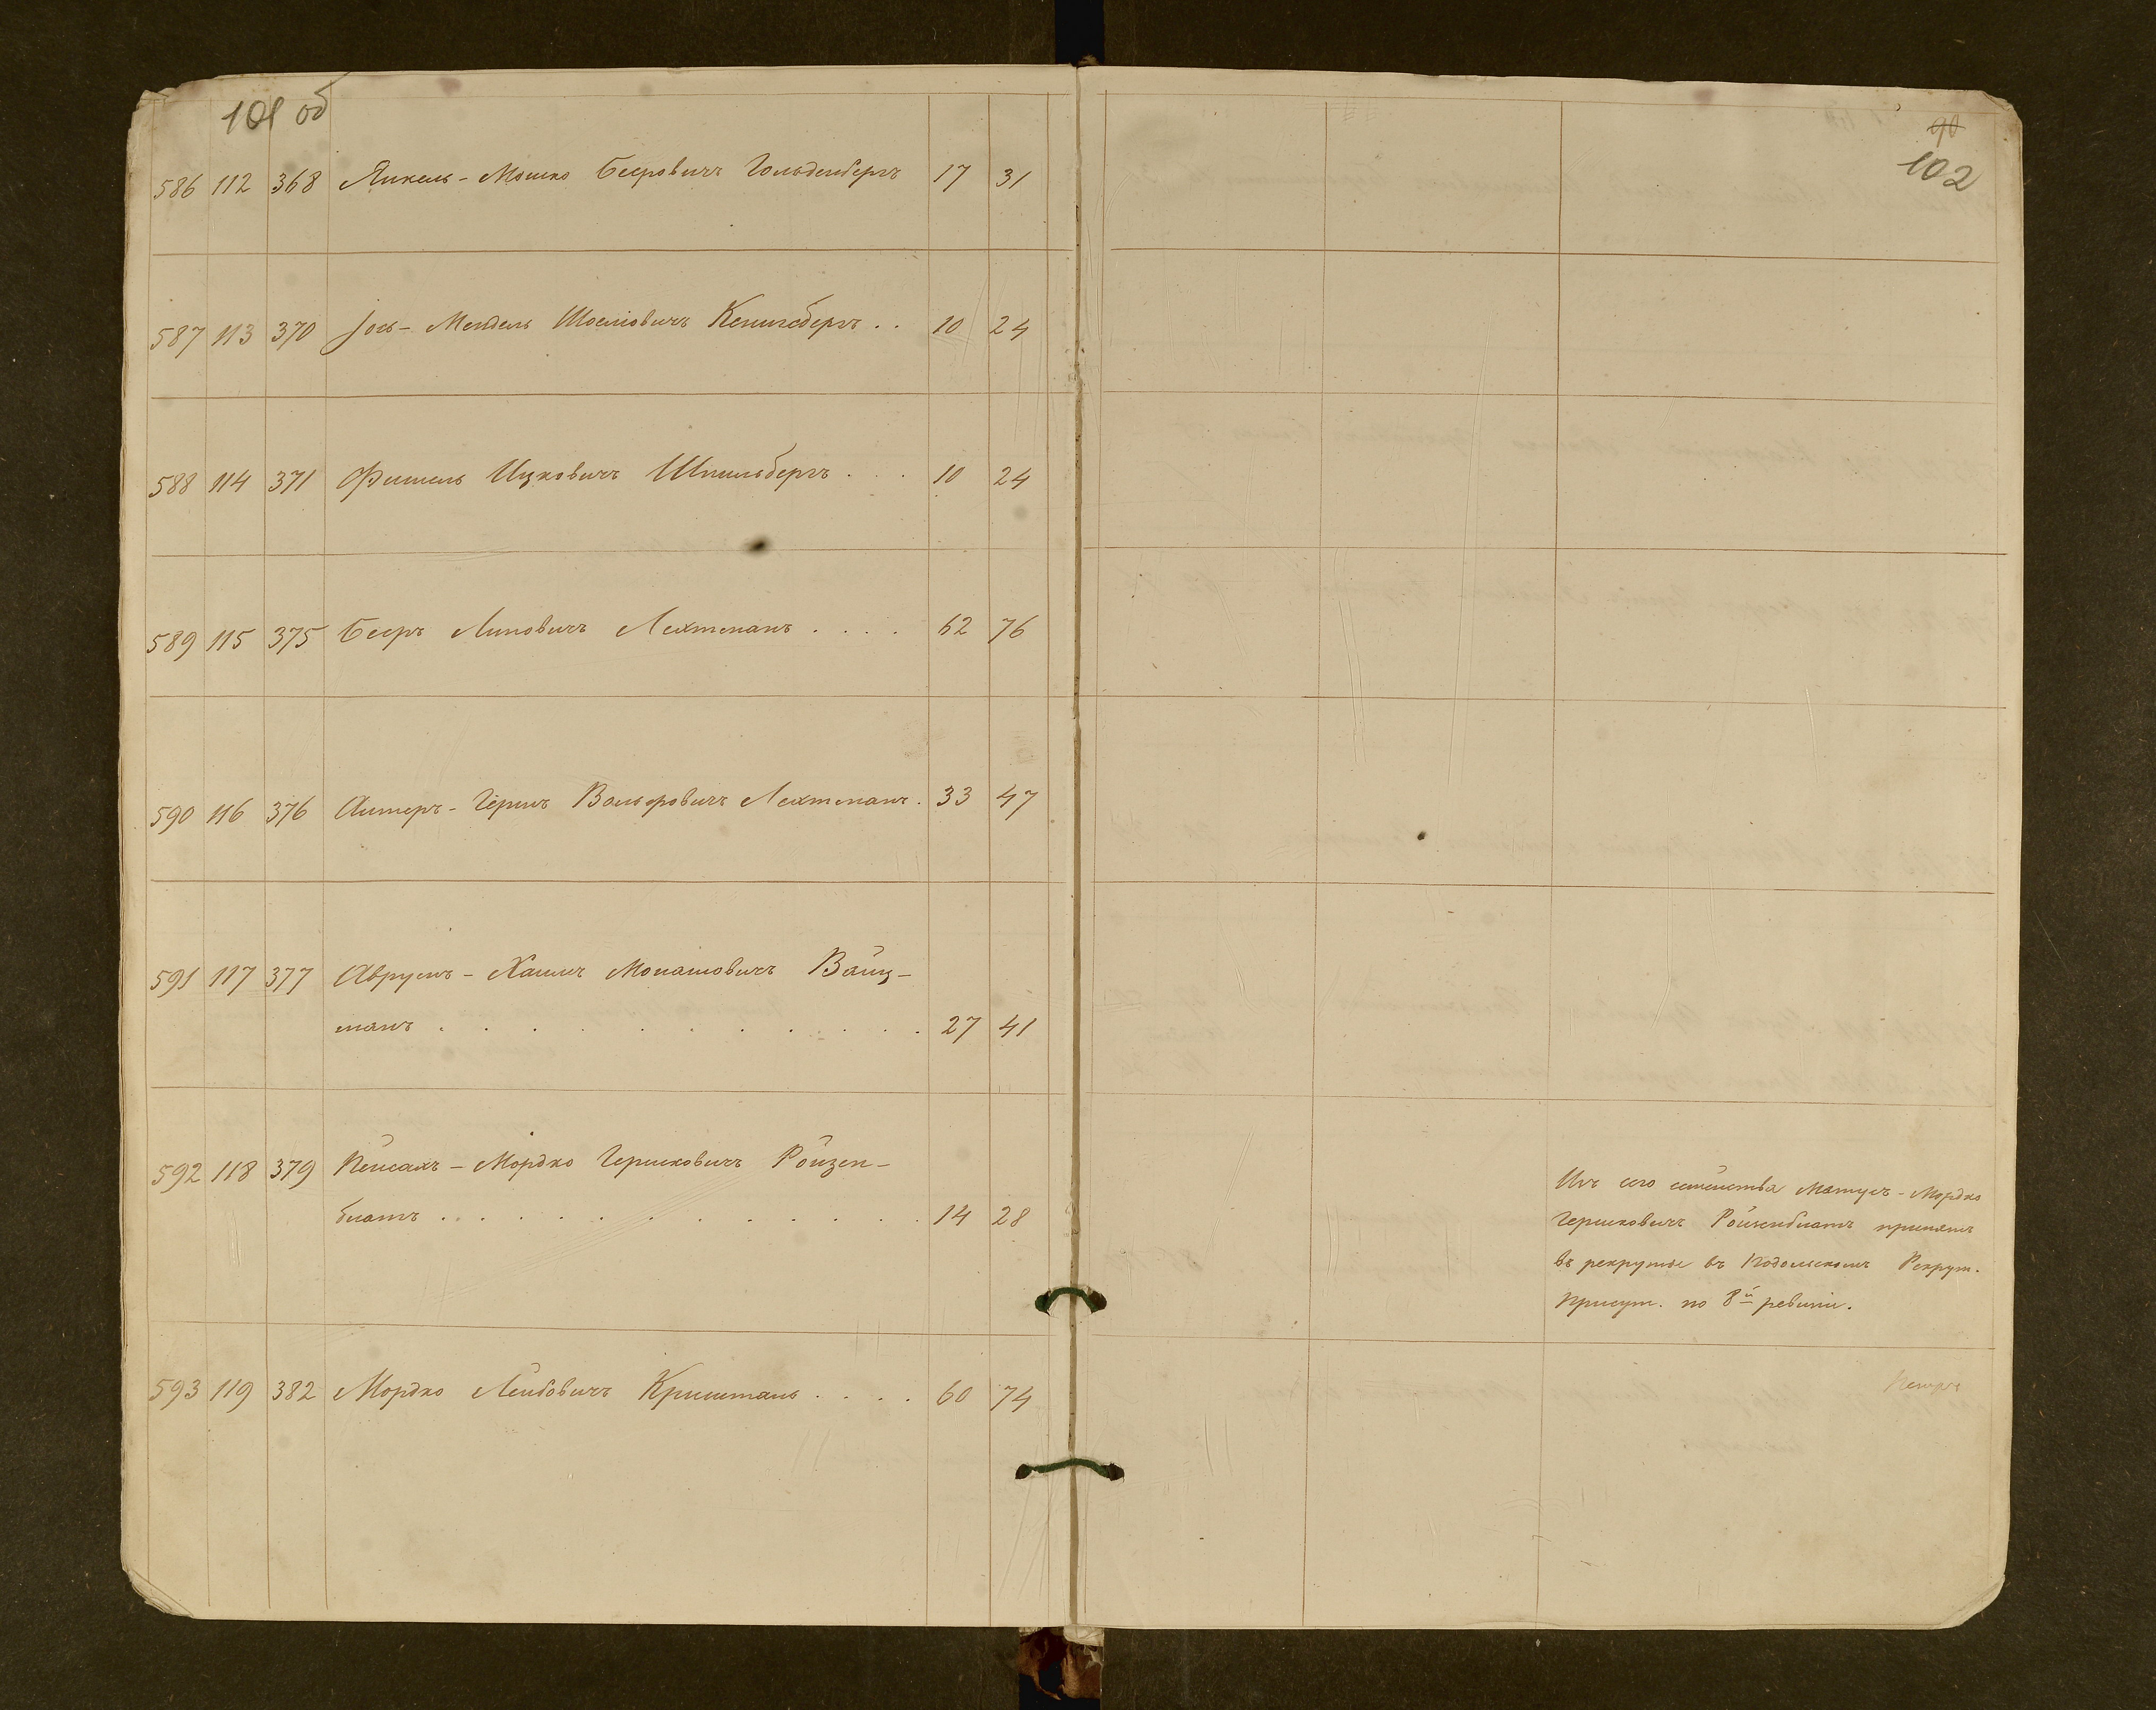 101 об
586 112 368 Янкель - Мошко Бееровичъ Гольденбергъ 17 31
587 113 370 Іось - Мендель Шоелювичъ Кенигсбергъ . . 10 24
588 114 371 Фишель Ицковичъ Шпильбергъ . . . 10 24
589 115 375 Бееръ Липовичъ Лехтманъ . . . . 62 76
590 116 376 Алтеръ - Гершъ Вольфовичъ Лехтманъ . 33 47
591 117 377 Аврумъ - Хаимъ Монашовичъ Вайц-
манъ . . . . . . . . . . 27 41
592 118 379 Пейсахъ - Мордко Гершковичъ Ройзен-
блатъ . . . . . . . . . . 14 28
593 119 382 Мордко Лейбовичъ Криштал . . . . 60 74
90
102
Изъ сего семейства Матусъ - Мордко
Гершковичъ Ройзенблатъ принятъ
въ рекруты въ Подольскомъ Рекрут.
Присут. по 8й ревизіи.